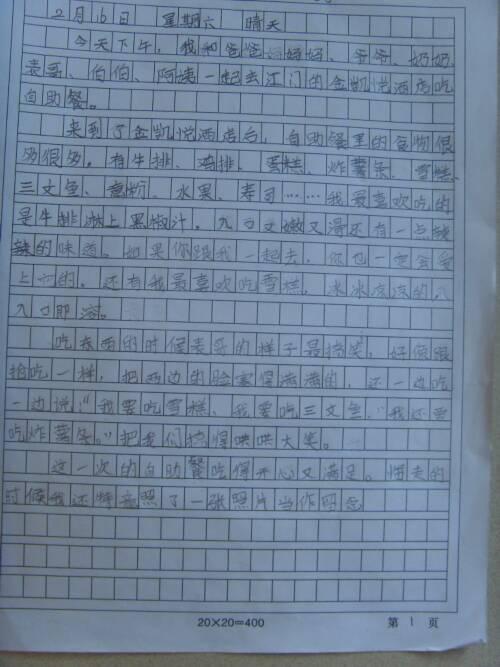 2月16日 星期六 晴天
今天下午,我和爸爸、妈妈、爷爷、奶奶、
表哥、伯伯、阿姨一起去江门的金凯悦酒店吃
自助餐。
来到了金凯悦酒店后,自助餐里的食物很
多很多。有牛排、鸡排、蛋糕、炸薯条、雪糕、
三文鱼、意粉、水果、寿司……我最喜欢吃的
是牛排淋上黑椒汁。入口又嫩又滑还有一点辣
辣的味道。如果你跟我一起去,你也一定会爱
上它的。还有我最喜欢吃雪糕,冰冰凉凉的,入
入口即溶。
吃东西的时候表哥的样子最搞笑,好像跟
抢吃一样,把两边的脸塞得满满的,还一边吃
一边说:“我要吃雪糕、我要吃三文鱼,“我还要
吃炸薯条。”把我们搞得哄哄大笑。
这一次的自助餐吃得开心又满足。临走的
时候我还特意照了一张照片当作纪念
20×20=400
第 1 页